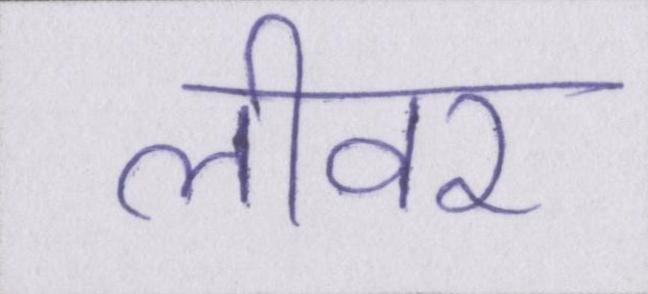 लीवर